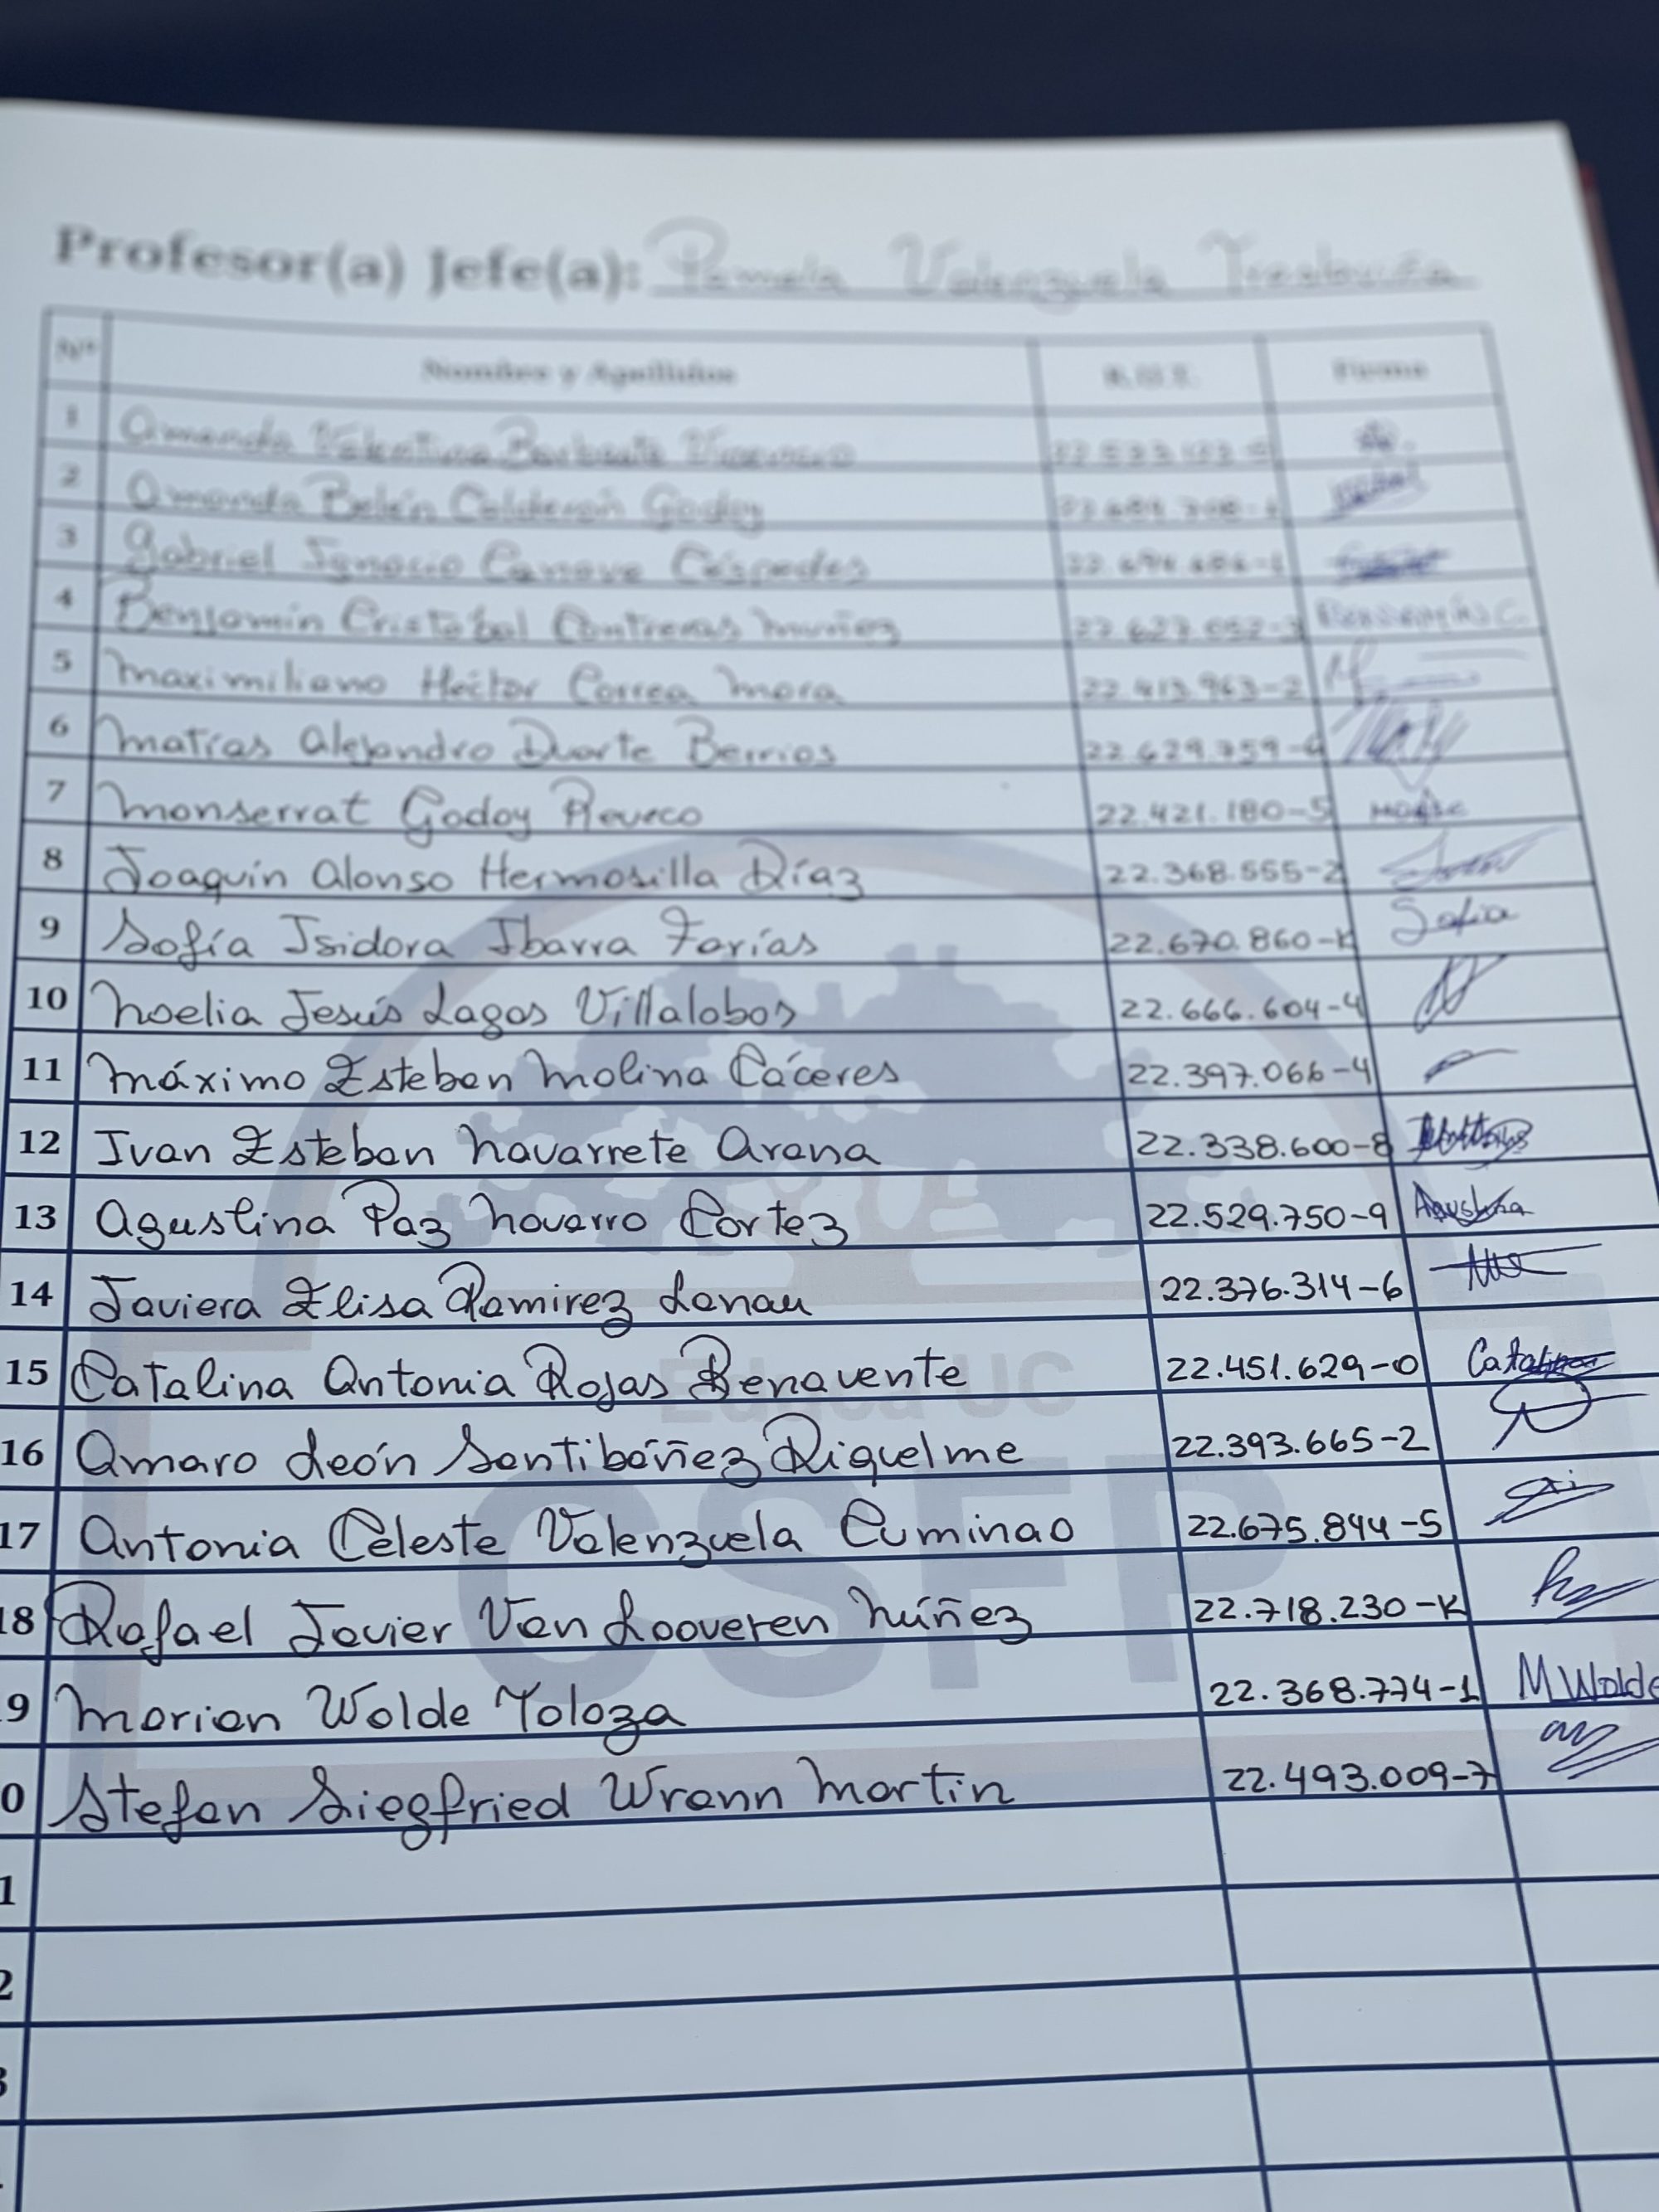 Profesor(a) Jefe(a): Pamela Valenzuela
Nº Nombres y Apellidos R.U.T. Firma
1 Amanda Valentina
2 Amanda Belén Calderón Godoy
3 Gabriel Ignacio Canave Céspedes
4 Benjamín Cristóbal Contreras Muñoz Benjamín C.
5 Maximiliano Héctor Correa Mora 22.413.963-2
6 Matías Alejandro Duarte Berrios
7 Monserrat Godoy Reveco 22.421.180-5
8 Joaquín Alonso Hermosilla Díaz 22.368.555-2
9 Sofía Isidora Ibarra Farías 22.670.860-K Sofia
10 Noelia Jesús Lagos Villalobos 22.666.604-4
11 Máximo Esteban Molina Cáceres 22.397.066-4
12 Ivan Esteban Navarrete Arana 22.338.600-8
13 Agustina Paz Navarro Cortez 22.529.750-9 Agustina
14 Javiera Elisa Ramirez Lanau 22.376.314-6
15 Catalina Antonia Rojas Benavente 22.451.629-0 Catalina
16 Amaro León Santibáñez Riquelme 22.393.665-2
17 Antonia Celeste Valenzuela Cuminao 22.675.844-5
18 Rafael Javier Van Looveren Núñez 22.718.230-K
9 Marian Wolde Toloza 22.368.774-1 M Wolde
0 Stefan Siegfried Wrann Martin 22.493.009-7
1
2
3
Educa UC
CSFP